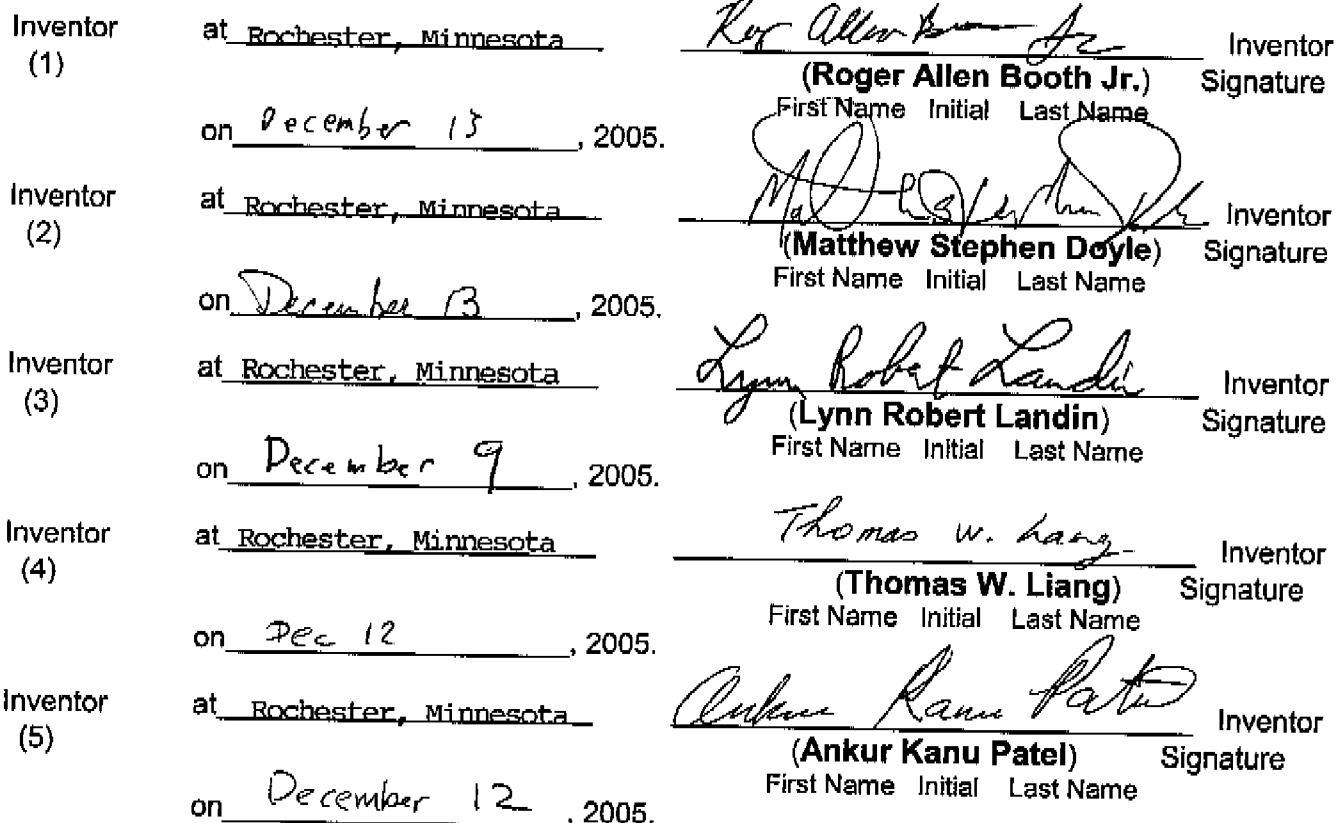 Inventor at Rochester, Minnesota Roger Allen Booth Jr Inventor
(1) (Roger Allen Booth Jr.) Signature
First Name Initial Last Name
on December 13, 2005.
Inventor at Rochester, Minnesota Inventor
(2) (Matthew Stephen Doyle) Signature
First Name Initial Last Name
on December 13, 2005.
Inventor at Rochester, Minnesota Lynn Robert Landin Inventor
(3) (Lynn Robert Landin) Signature
First Name Initial Last Name
on December 9, 2005.
Inventor at Rochester, Minnesota Thomas W. Liang Inventor
(4) (Thomas W. Liang) Signature
First Name Initial Last Name
on Dec 12, 2005.
Inventor at Rochester, Minnesota Ankur Kanu Patel Inventor
(5) (Ankur Kanu Patel) Signature
First Name Initial Last Name
on December 12, 2005.